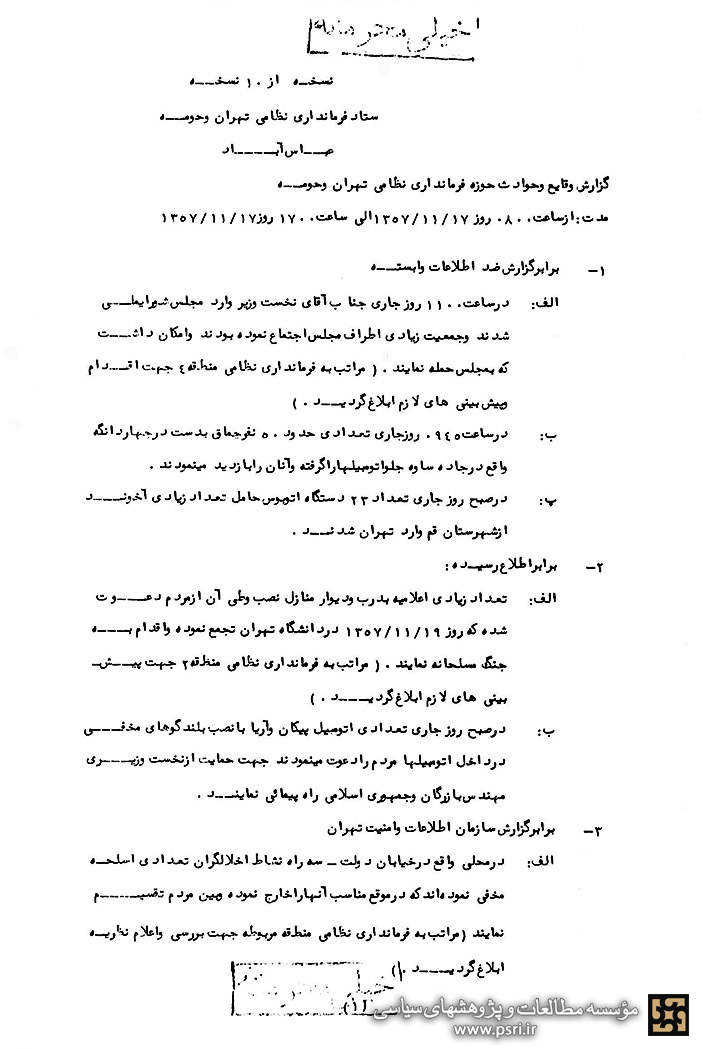 خیلی محرمانه
نسخه از ۱۰ نسخه
ستاد فرمانداری نظامی تهران وحومه
عباس آباد
گزارش وقایع وحوادث حوزه فرمانداری نظامی تهران وحومه
مدت: ازساعت ۰۸۰۰ روز ۱۳۵۷/۱۱/۱۷ الی ساعت ۱۷۰۰ روز ۱۳۵۷/۱۱/۱۷
۱- برابرگزارش ضد اطلاعات وابسته
الف: درساعت ۱۱۰۰ روز جاری جناب آقای نخست وزیر وارد مجلس شورایملی
شدند وجمعیت زیادی اطراف مجلس اجتماع نموده بودند وامکان داشت
که بمجلس حمله نمایند . ( مراتب به فرمانداری نظامی منطقه ٤ جهت اقدام
وپیش بینی های لازم ابلاغ گردید . )
ب: درساعت ۰۹٤٥ روزجاری تعدادی حدود ۵۰ نفرچماق بدست درچهاردانگه
واقع درجاده ساوه جلواتومبیلهاراگرفته وآنان رابازدید مینمودند .
پ: درصبح روز جاری تعداد ۲۳ دستگاه اتوبوس حامل تعداد زیادی آخوند
ازشهرستان قم وارد تهران شدند .
۲- برابراطلاع رسیده :
الف: تعداد زیادی اعلامیه بدرب ودیوار منازل نصب وطی آن ازمردم دعوت
شده که روز ۱۳۵۷/۱۱/۱۹ دردانشگاه تهران تجمع نموده واقدام به
جنگ مسلحانه نمایند . ( مراتب به فرمانداری نظامی منطقه ۲ جهت پیش
بینی های لازم ابلاغ گردید . )
ب: درصبح روز جاری تعدادی اتومبیل پیکان وآریا بانصب بلندگوهای مخفی
درداخل اتومبیلها مردم رادعوت مینمودند جهت حمایت ازنخست وزیری
مهندس بازرگان وجمهوری اسلامی راه پیمائی نمایند .
۳- برابرگزارش سازمان اطلاعات وامنیت تهران
الف: درمحلی واقع درخیابان دولت - سه راه نشاط اخلالگران تعدادی اسلحه
مخفی نموده اندکه درموقع مناسب آنهاراخارج نموده وبین مردم تقسیم
نمایند (مراتب به فرمانداری نظامی منطقه مربوطه جهت بررسی واعلام نظریه
ابلاغ گردید . )
خیلی محرمانه
(۱)
مؤسسه مطالعات و پژوهشهای سیاسی
www.psri.ir